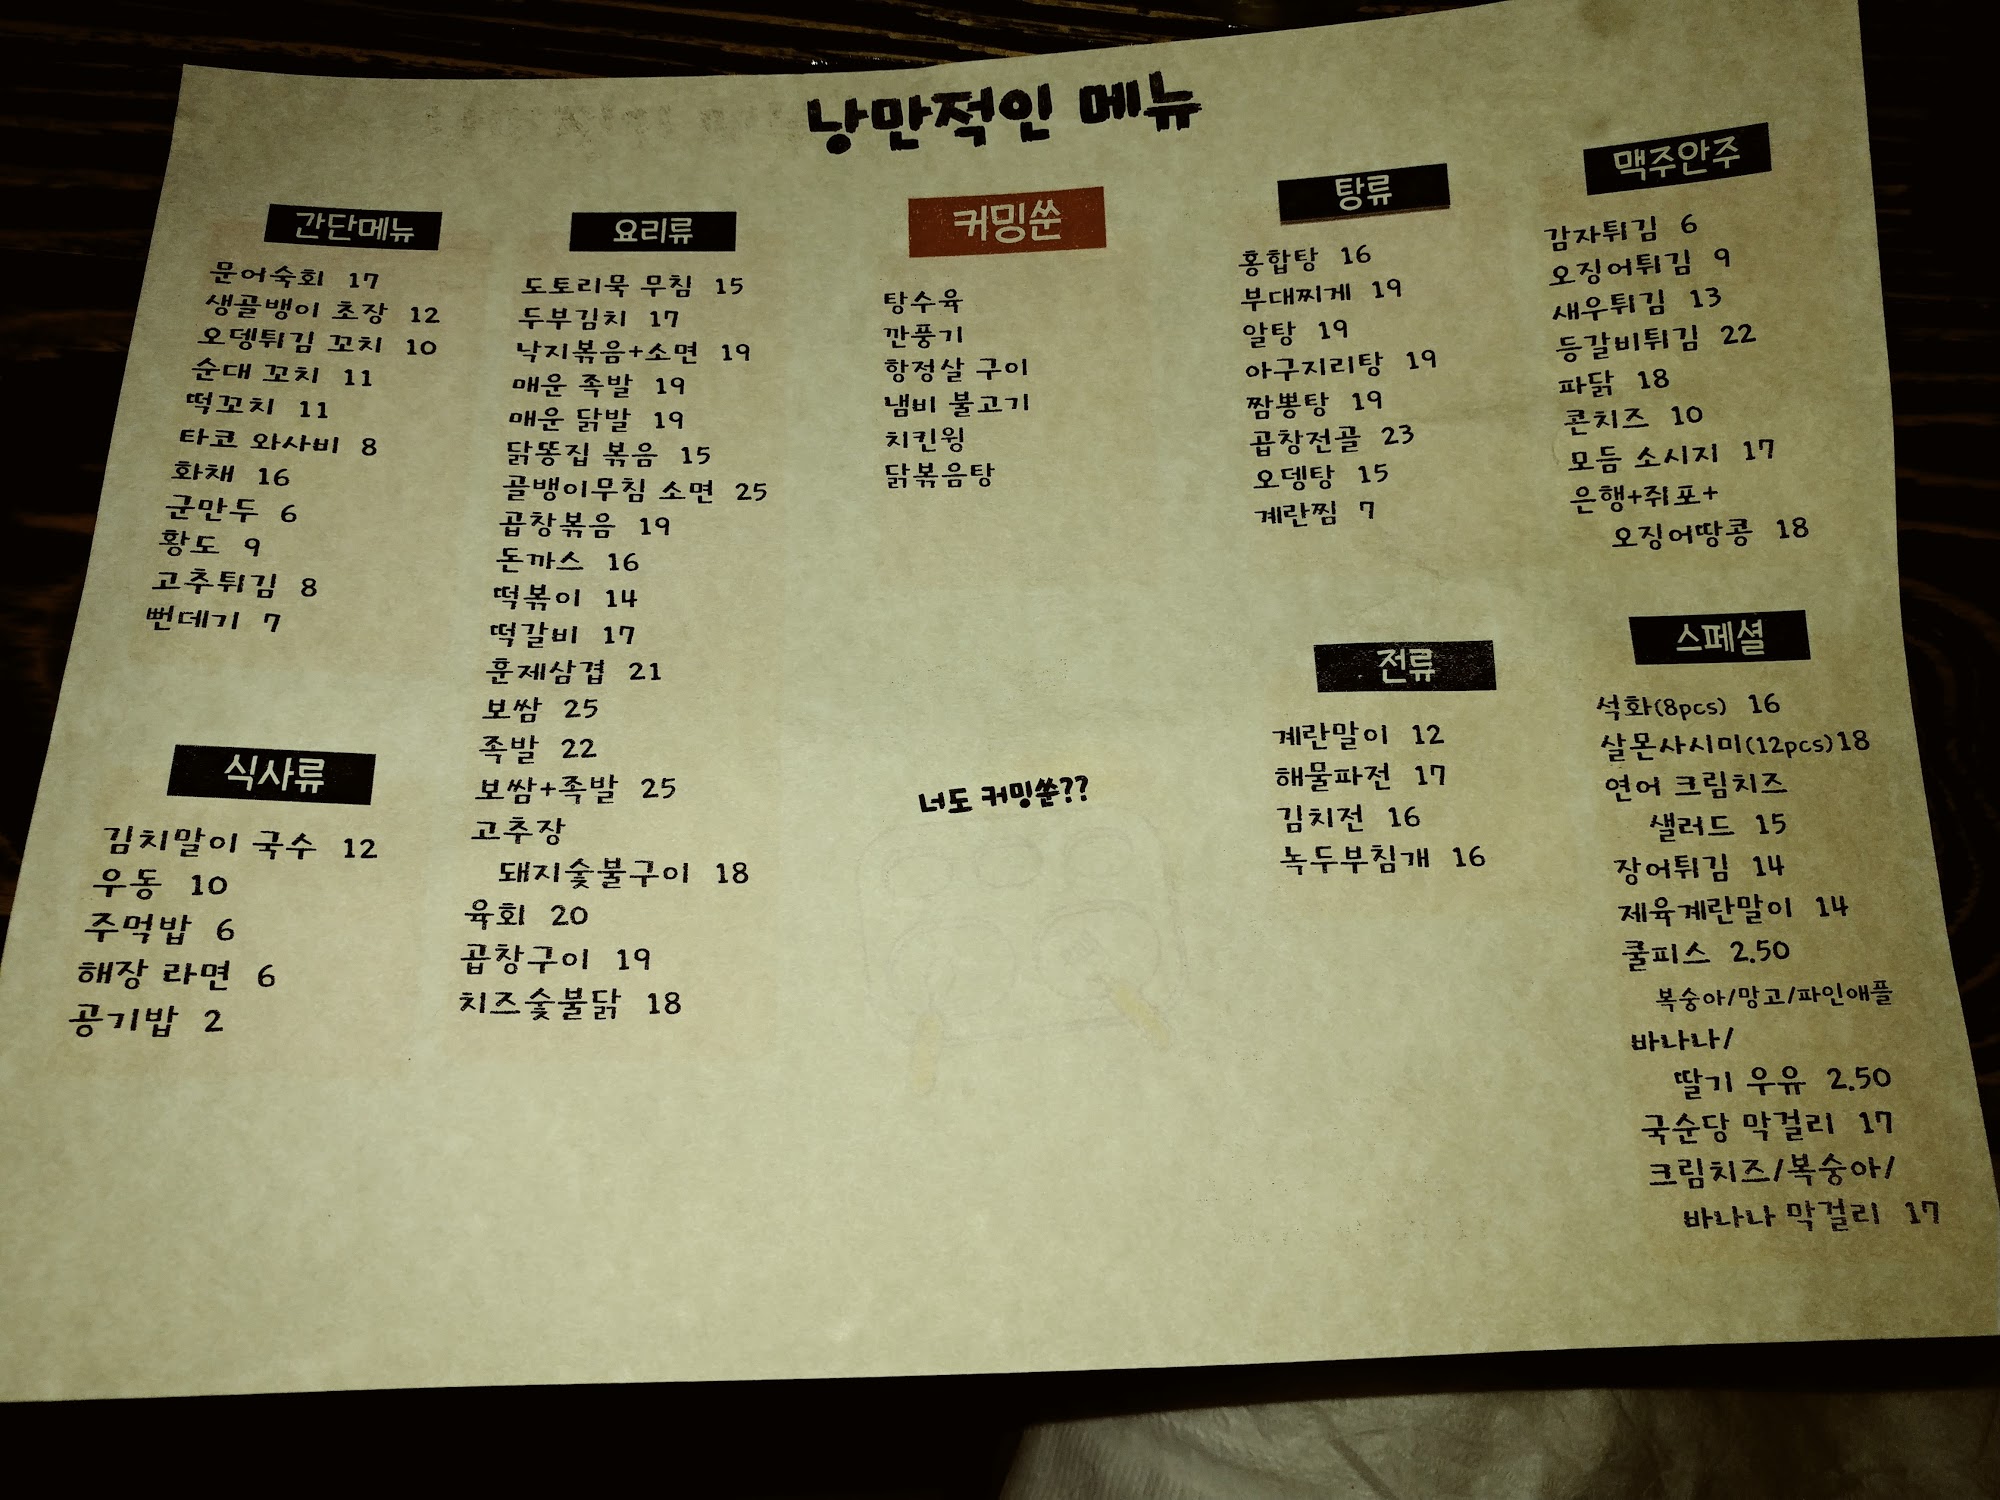 낭만적인 메뉴
간단메뉴
문어숙회 17
생골뱅이 초장 12
오뎅튀김 꼬치 10
순대 꼬치 11
떡꼬치 11
타코 와사비 8
화채 16
군만두 6
황도 9
고추튀김 8
뻔데기 7
식사류
김치말이 국수 12
우동 10
주먹밥 6
해장 라면 6
공기밥 2
요리류
도토리묵 무침 15
두부김치 17
낙지볶음+소면 19
매운 족발 19
매운 닭발 19
닭똥집 볶음 15
골뱅이무침 소면 25
곱창볶음 19
돈까스 16
떡볶이 14
떡갈비 17
훈제삼겹 21
보쌈 25
족발 22
보쌈+족발 25
고추장
돼지숯불구이 18
육회 20
곱창구이 19
치즈숯불닭 18
커밍쑨
탕수육
깐풍기
항정살 구이
냄비 불고기
치킨윙
닭볶음탕
너도 커밍쑨??
탕류
홍합탕 16
부대찌게 19
알탕 19
아구지리탕 19
짬뽕탕 19
곱창전골 23
오뎅탕 15
계란찜 7
전류
계란말이 12
해물파전 17
김치전 16
녹두부침개 16
맥주안주
감자튀김 6
오징어튀김 9
새우튀김 13
등갈비튀김 22
파닭 18
콘치즈 10
모듬 소시지 17
은행+쥐포+
오징어땅콩 18
스페셜
석화(8pcs) 16
살몬사시미(12pcs) 18
연어 크림치즈
샐러드 15
장어튀김 14
제육계란말이 14
쿨피스 2.50
복숭아/망고/파인애플
바나나/
딸기 우유 2.50
국순당 막걸리 17
크림치즈/복숭아/
바나나 막걸리 17